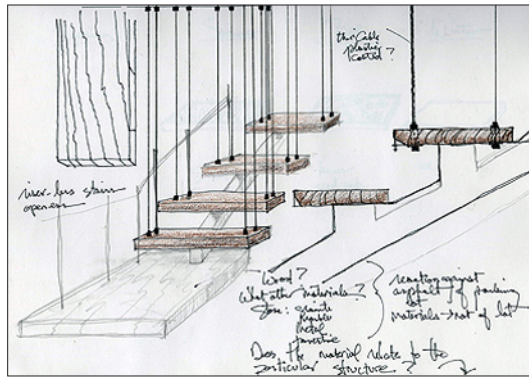 thin Cable
plastic
coated?
riser-less stairs
openness
Wood?
What other materials?
Stone: granite
marble
metal
reaction against
asphalt of parking
lot
materials → not of lot
Does the material relate to the
particular structure?